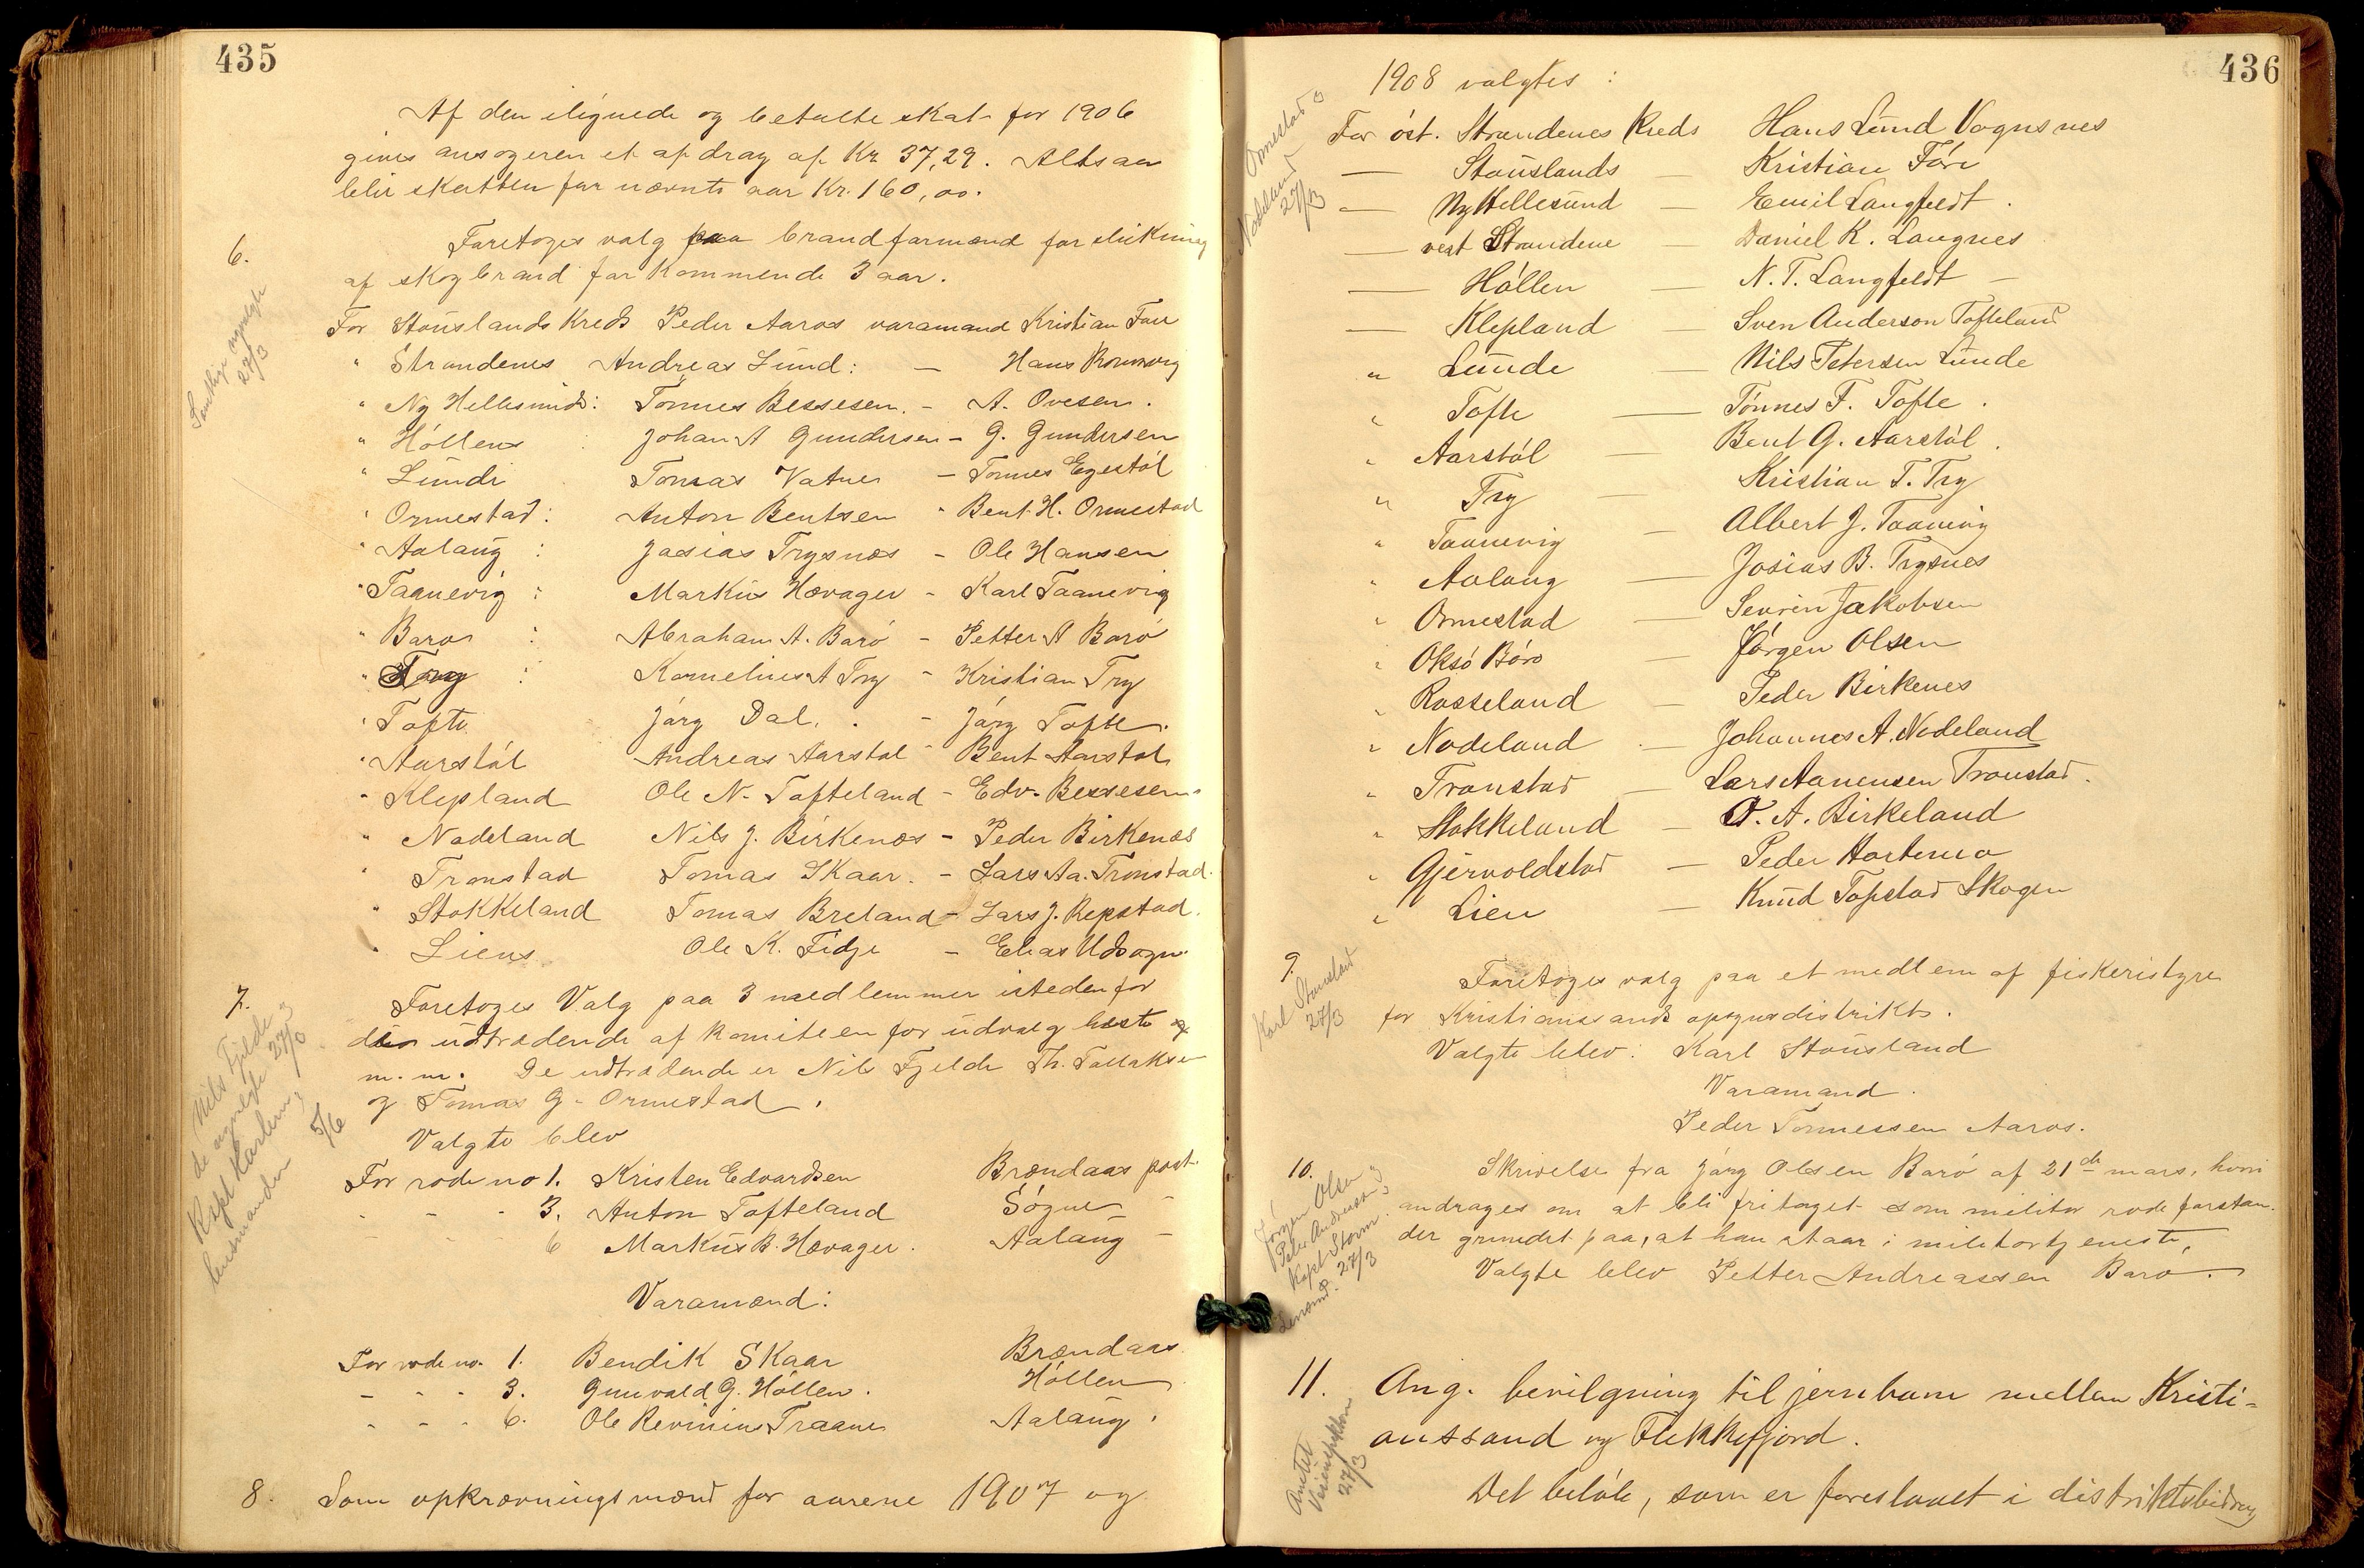 435
Af den ilignede og betalte skat for 1906
gives ansøgeren et afdrag af Kr. 37,29. Altsaa
blir skatten for nævnte aar Kr. 160,00.
6.
Foretoges valg paa brandformænd for slukning
af skogbrand for kommende 3 aar.
Samtlige 27/3
For Stauslands Kreds Peder Aaros varamand Kristian Faré
" Strandenes Andreas Lund: — Hans
" Ny Hellesunds: Tønnes Bessesen. - A. Ovesen.
" Høllens : Johan A Gundersen - G. Gundersen
" Lunde Tomas Vatnes - Tønnes Egestøl
" Ormestad: Anton Bentsen - Bent H. Ormestad
" Aalaug : Josias Trysnæs - Ole Hansen
" Taanevig : Markus Hævager - Karl Taanevig
" Barøs : Abraham A. Barø - Petter A Barø
" Try : Kornelius A Try - Kristian Try
" Tofte Jørg Dal. - Jørg Tofte.
" Aarstøl Andreas Aarstøl - Bent Aarstøl
" Klepland Ole N. Tofteland - Edv. Bessesen.
" Nodeland Nils J. Birkenæs - Peder Birkenæs
" Tronstad Tomas Skaar. - Lars Aa. Tronstad.
" Stokkeland Tomas Breland - Lars J. Repstad.
" Liens Ole K. Fidje - Elias
7.
Foretoges Valg paa 3 medlemmer isteden for
de udtrædende af komiteen for udvalg heste og
m.m. De udtrædende er Nils Fjelde Th. Tallaksen
og Tomas G. Ormestad.
Nils Fjelde
de nyvalgte 27/3
Kapt Karlsen,
lensmanden 5/6
Valgte blev
For rode no 1. Kristen Edvardsen Brændaas post.
- - - 3. Anton Tofteland Søgne -
- - - 6 Markus B. Hævager. Aalaug -
Varamænd:
For rode no. 1. Bendik Skaar Brændaas.
- - - 3. Gunvald G. Høllen. Høllen
- - - 6. Ole Traanes Aalaug.
8. Som opkrævningsmænd for aarene 1907 og
436
1908 valgtes :
Ormestad
Nodeland
27/3
For øst. Strandenes Kreds Hans Lund Vognsnes
— Stauslands — Kristian Faré
— Ny Hellesund — Emil Langfeldt.
— vest Strandene Daniel K. Langnes
— Høllen — N. T. Langfeldt —
— Klepland — Sven Anderson Tofteland
" Lunde — Nils Petersen Lunde
" Tofte — Tønnes F. Tofte.
" Aarstøl — Bent G. Aarstøl.
" Try — Kristian T. Try
" Taanevig — Albert J. Taanevig
" Aalaug — Josias B. Trysnes
" Ormestad — Sevrin Jakobsen
" Oksø Børø — Jørgen Olsen
" Rosseland — Peder Birkenes
" Nodeland — Johannes A. Nodeland
" Tronstad — Lars Aanensen Tronstad.
" Stokkeland — O. A. Birkeland
" Gjervoldstad — Peder Hortemo
" Lien — Knud Topstad Skogen
9.
Karl Stausland
27/3
Foretoges valg paa et medlem af fiskeristyre
for Kristianssands opsynsdistrikt.
Valgte blev: Karl Stausland
Varamand.
Peder Tønnessen Aaros.
10.
Jørgen Olsen
Peter Andreassen
Kapt Storm
Lensmd. 27/3
Skrivelse fra Jørg Olsen Barø af 21de mars, hvori
andrages om at bli fritaget som militær rodeforstan-
der grundet paa, at han staar i militærtjeneste,
Valgte blev Petter Andreassen Barø.
11. Ang. bevilgning til jernbane mellem Kristi-
anssand og Flekkefjord.
Amtet
27/3
Det beløb, som er foreslaaet i distriktsbidrag